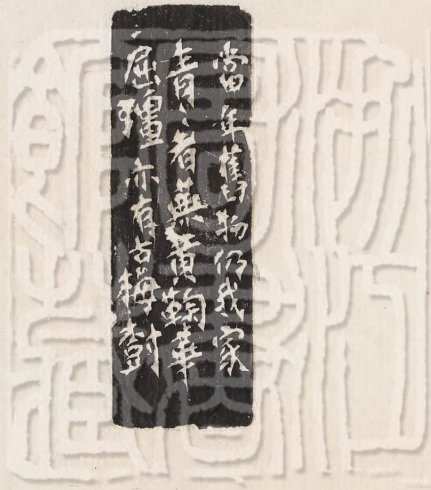 當年舊物仍我家
青〻者無黃鞠華
屈彊亦有古梅樹